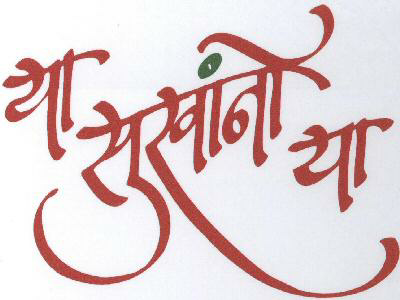 या
सुखांनो
या